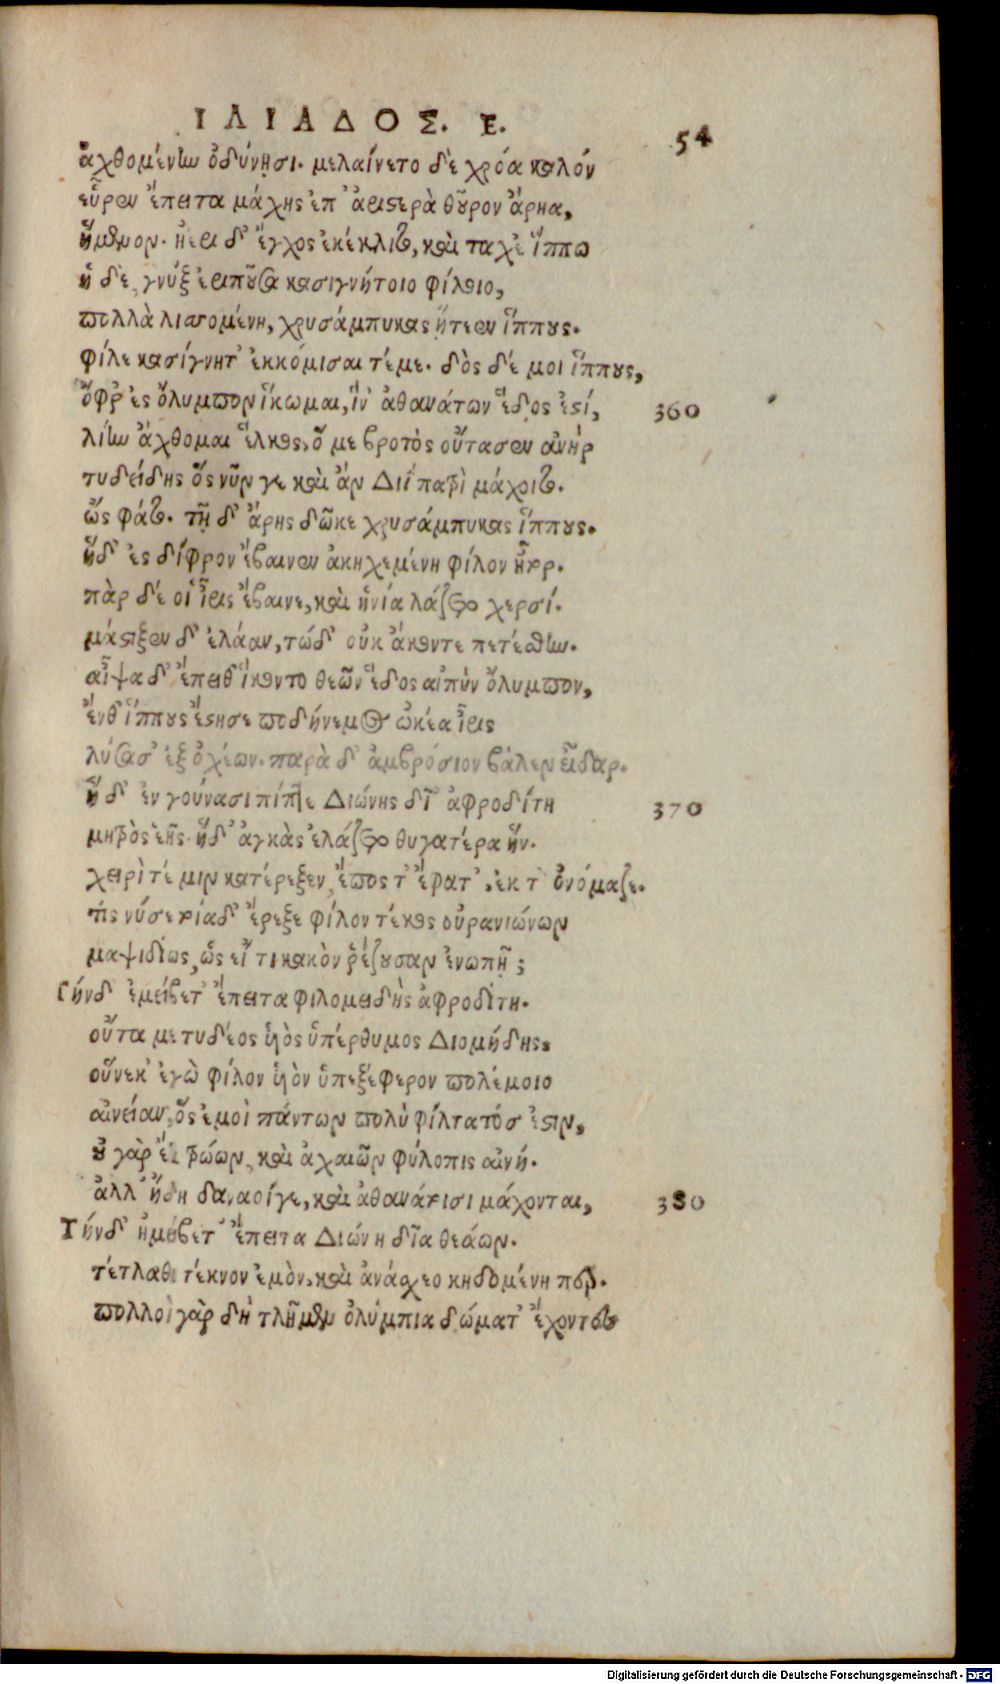 ΙΛΙΑΔΟΣ. Ε.
54
ἀχθομένην ὀδύνῃσι. μελαίνετο δὲ χρόα καλόν
εὗρεν ἔπειτα μάχης ἐπ' ἀειστερὰ θοῦρον ἄρηα,
ἥμενον. ἠέει δ' ἔγχος ἐκέκλιτο, καὶ ταχέ' ἵππω
ἡ δὲ γνὺξ ἐειποῦσα κασιγνήτοιο φίλοιο,
πολλὰ λισσομένη, χρυσάμπυκας ᾔτεεν ἵππους.
φίλε κασίγνητ' ἐκκόμισαι τέ με. δὸς δέ μοι ἵππους,
ὄφρ' ἐς ὄλυμπον ἵκωμαι, ἵν' ἀθανάτων ἕδος ἐστί,
360
λίην ἄχθομαι ἕλκος, ὅ με βροτὸς οὔτασεν ἀνὴρ
τυδείδης ὃς νῦν γε καὶ ἂν Διῒ πατρὶ μάχοιτο.
ὣς φάτο. τῇ δ' ἄρης δῶκε χρυσάμπυκας ἵππους.
ἡ δ' ἐς δίφρον ἔβαινεν ἀκηχεμένη φίλον ἦτορ.
πὰρ δέ οἱ ἶρις ἔβαινε, καὶ ἡνία λάζετο χερσί.
μάστιξεν δ' ἐλάαν, τώδ' οὐκ ἄκοντε πετέσθην.
αἶψα δ' ἔπειθ' ἵκοντο θεῶν ἕδος αἰπὺν ὄλυμπον,
ἔνθ' ἵππους ἔστησε ποδήνεμος ὠκέα ἶρις
λύσασ' ἐξ ὀχέων. παρὰ δ' ἀμβρόσιον βάλεν εἶδαρ.
ἡ δ' ἐν γούνασι πίπτε Διώνης δῖ' ἀφροδίτη
370
μητρὸς ἑῆς. ἡ δ' ἀγκὰς ἐλάζετο θυγατέρα ἥν.
χειρί τέ μιν κατέρεξεν, ἔπος τ' ἔφατ', ἐκ τ' ὀνόμαζε.
τίς νύ σε τοιάδ' ἔρεξε φίλον τέκος οὐρανιώνων
μαψιδίως, ὡς εἴ τι κακὸν ῥέζουσαν ἐνωπῇ;
Τήνδ' ἐμείβετ' ἔπειτα φιλομειδὴς ἀφροδίτη.
οὖτα με τυδέος ὑὸς ὑπέρθυμος Διομήδης,
οὕνεκ' ἐγὼ φίλον ὑὸν ὑπεξέφερον πολέμοιο
αἰνείαν, ὃς ἐμοὶ πάντων πολὺ φίλτατός ἐστιν,
οὐ γὰρ ἔτι τρώων, καὶ ἀχαιῶν φύλοπις αἰνή.
ἀλλ' ἤδη δαναοίγε, καὶ ἀθανάτοισι μάχονται,
380
Τήνδ' ἠμείβετ' ἔπειτα Διώνη δῖα θεάων.
τέτλαθι τέκνον ἐμὸν, καὶ ἀνάσχεο κηδομένη περ.
πολλοὶ γὰρ δὴ τλῆμεν ὀλύμπια δώματ' ἔχοντες
Digitalisierung gefördert durch die Deutsche Forschungsgemeinschaft - DFG